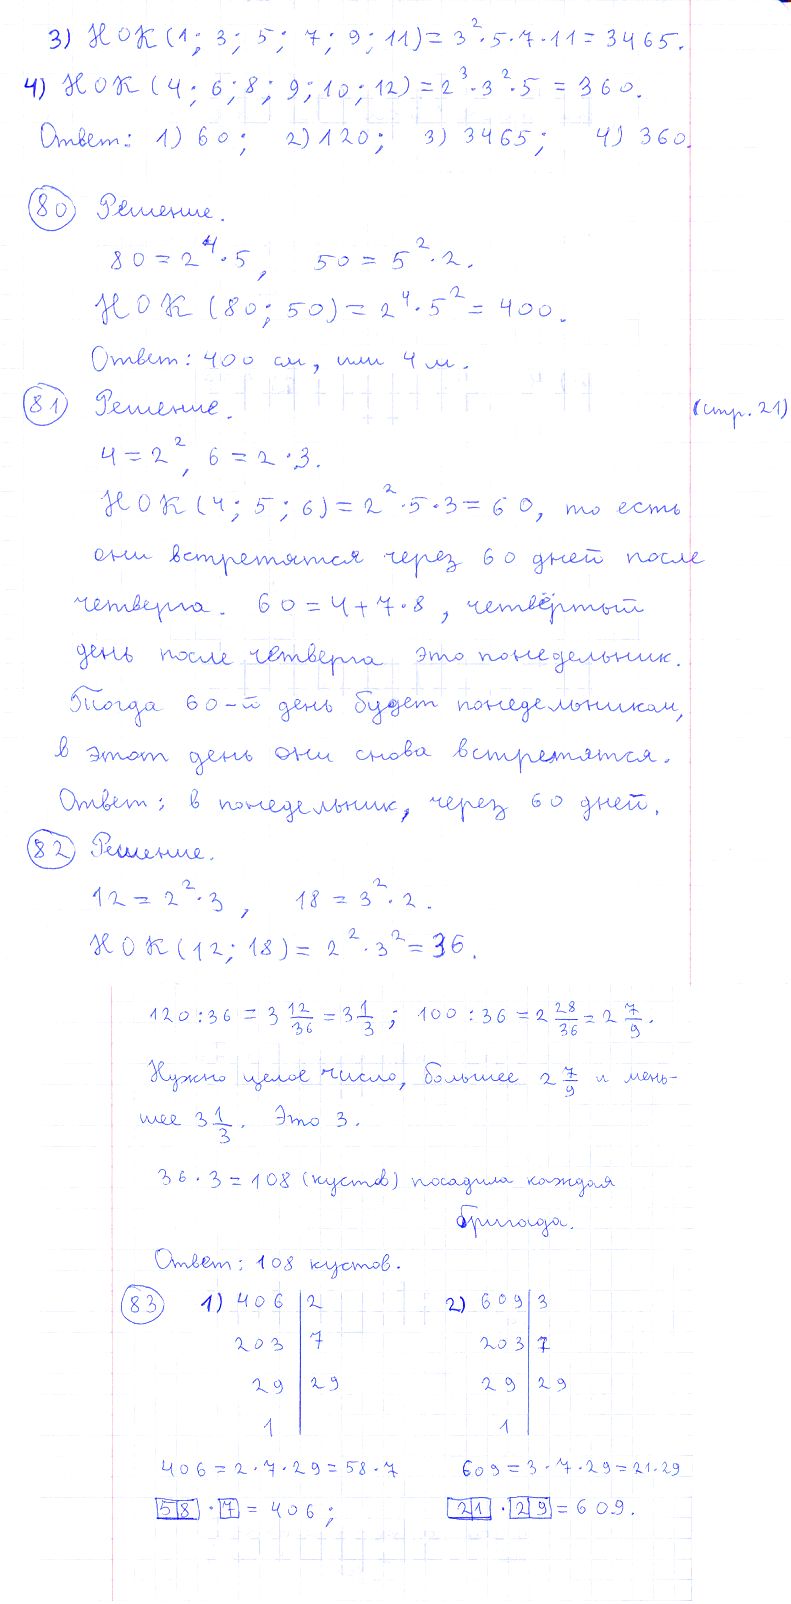 3) НОК (1; 3; 5; 7; 9; 11) = 3²·5·7·11 = 3465.
4) НОК (4; 6; 8; 9; 10; 12) = 2³·3²·5 = 360.
Ответ: 1) 60; 2) 120; 3) 3465; 4) 360.
80 Решение.
80 = 2⁴·5, 50 = 5²·2.
НОК (80; 50) = 2⁴·5² = 400.
Ответ: 400 см, или 4 м.
81 Решение. (стр. 21)
4 = 2², 6 = 2·3.
НОК (4; 5; 6) = 2²·5·3 = 60, то есть
они встретятся через 60 дней после
четверга. 60 = 4 + 7·8, четвёртый
день после четверга это понедельник.
Тогда 60-й день будет понедельником,
в этот день они снова встретятся.
Ответ: в понедельник, через 60 дней.
82 Решение.
12 = 2²·3, 18 = 3²·2.
НОК (12; 18) = 2²·3² = 36.
120 : 36 = 3 12/36 = 3 1/3; 100 : 36 = 2 28/36 = 2 7/9.
Нужно целое число, большее 2 7/9 и мень-
шее 3 1/3. Это 3.
36·3 = 108 (кустов) посадила каждая
бригада.
Ответ: 108 кустов.
83 1) 406 | 2 2) 609 | 3
203 | 7 203 | 7
29 | 29 29 | 29
1 | 1 |
406 = 2·7·29 = 58·7 609 = 3·7·29 = 21·29
58 · 7 = 406; 21 · 29 = 609.